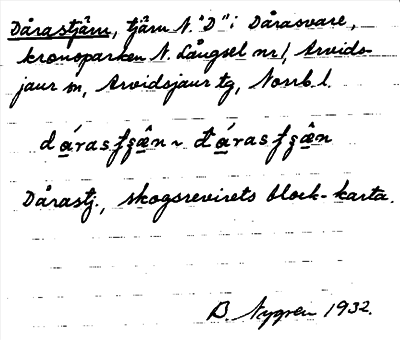 Dårastjärn, tjärn N. "D" i Dårasvare,
kronoparken N. Långsel nr 1, Arvids-
jaur sn, Arvidsjaur tg, Norrb. l.
Dårastj., skogsrevirets block-karta.
B. Nygren 1932.